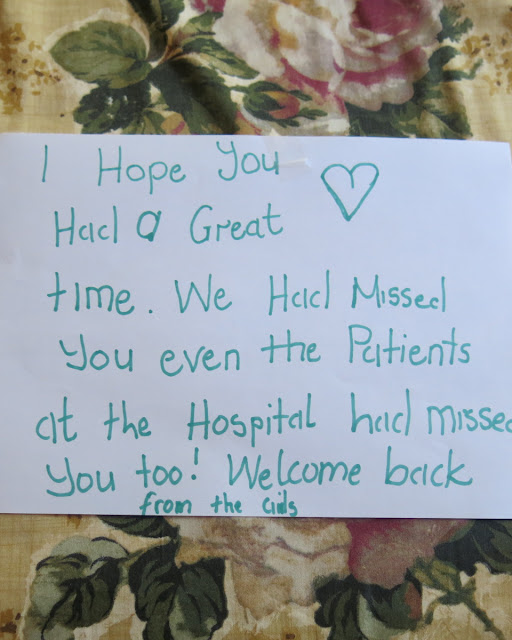 I Hope You
Had a Great
time. We Had Missed
You even the Patients
at the Hospital had missed
You too! Welcome back
from the Girls